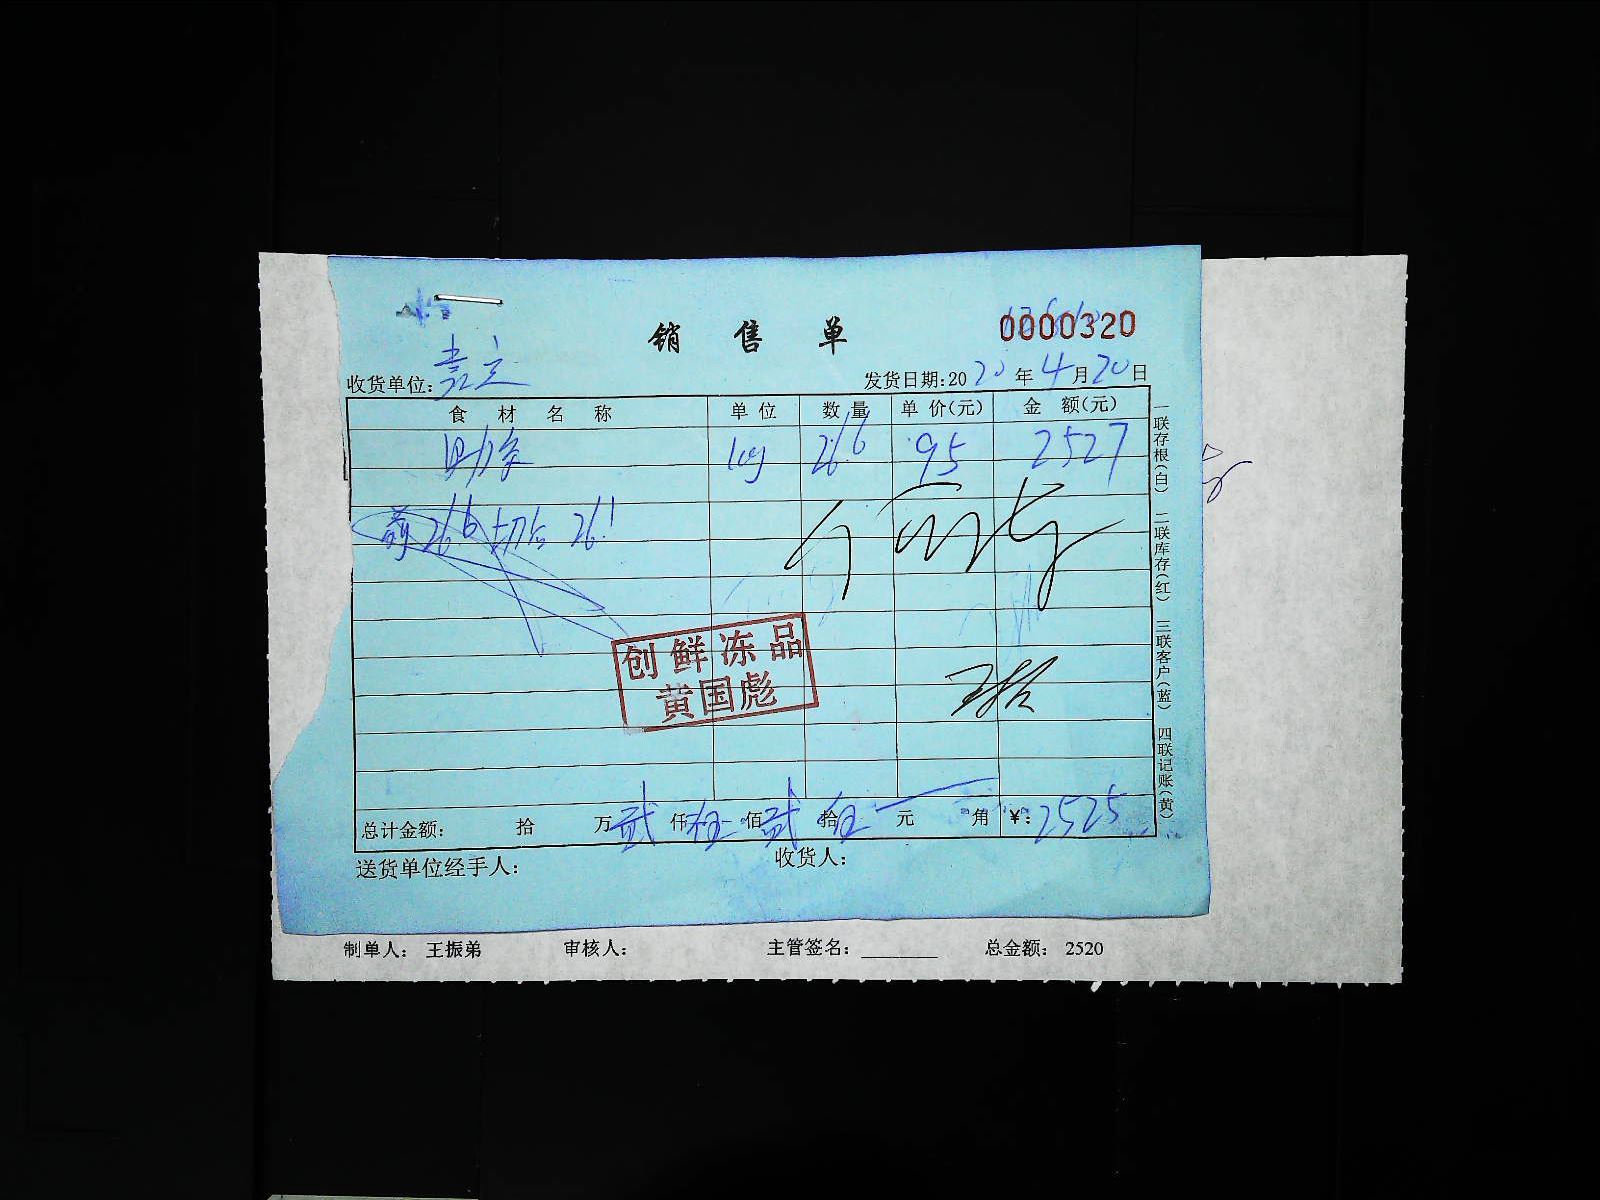 销售单
0000320
收货单位:嘉定
发货日期:2020年4月20日
食材名称 单位 数量 单价(元) 金额(元)
kg 26.6 95 2527
前26.6切后26.1
创鲜冻品
黄国彪
总计金额: 拾 万贰仟伍佰贰拾伍元 角 ¥:2525
送货单位经手人: 收货人:
一联存根(白) 二联库存(红) 三联客户(蓝) 四联记账(黄)
制单人: 王振弟 审核人: 主管签名: 总金额: 2520